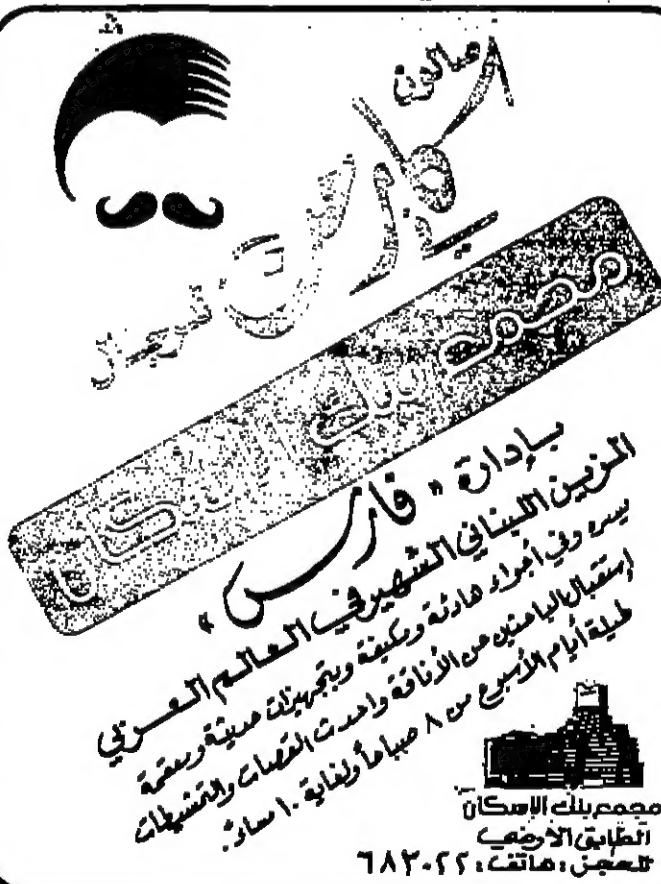 صالون
للرجال
مجمع بنك الإسكان
بإدارة « فارس »
المزين اللبناني الشهير في العالم العربي
يسره وفي أجواء هادئة ومكيفة وبتجهيزات حديثة ومعقمة
إستقبال الباحثين عن الأناقة واحدث القصات والتمشيطات
طيلة أيام الأسبوع من ٨ صباحاً ولغاية ١٠ مساءً.
مجمع بنك الإسكان
الطابق الارضي
للحجز: هاتف: ٦٨٣٠٢٢